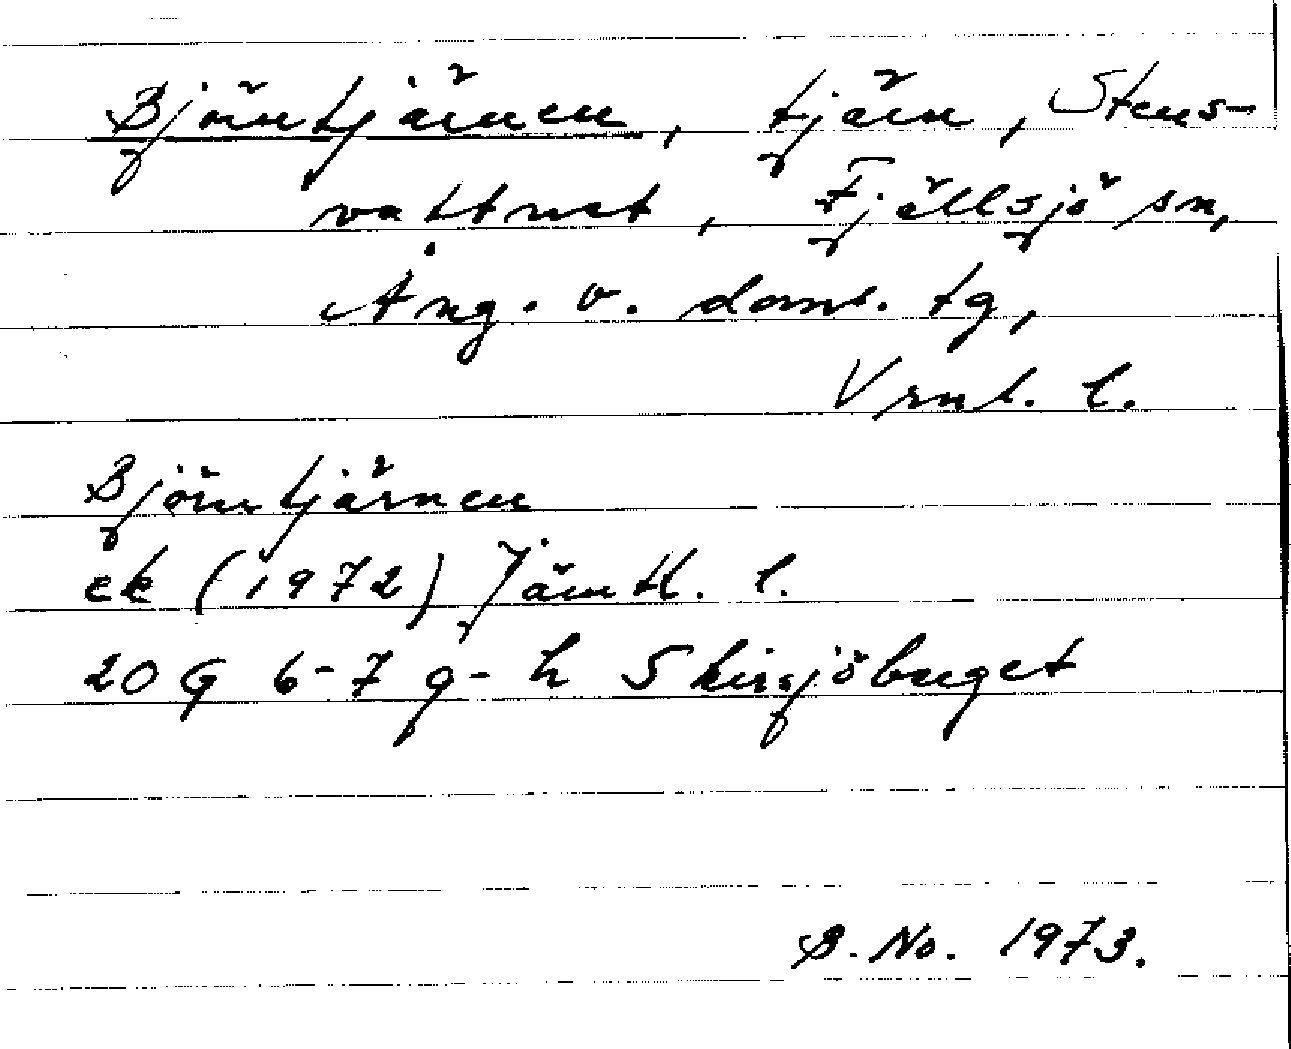 Björntjärnen, tjärn, Stens-
vattnet, Fjällsjö sn,
Ång. v. doms. tg,
Vrnl. l.
Björntjärnen
ek (1972) Jämtl. l.
20 G 6-7 g-h Skirsjöberget
B. No. 1973.